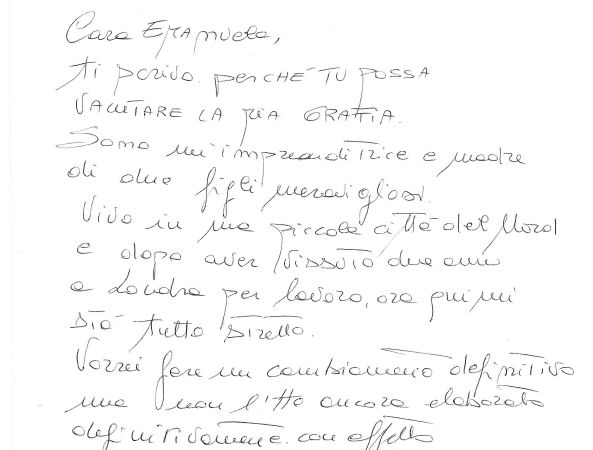 Cara Emanuela,
ti scrivo perché tu possa
valutare la mia grafia.
Sono un'imprenditrice e madre
di due figli meravigliosi.
Vivo in una piccola città del Nord
e dopo aver vissuto due anni
a Londra per lavoro, ora qui mi
stà tutto stretto.
Vorrei fare un cambiamento definitivo
ma non l'ho ancora elaborato
definitivamente. con affetto